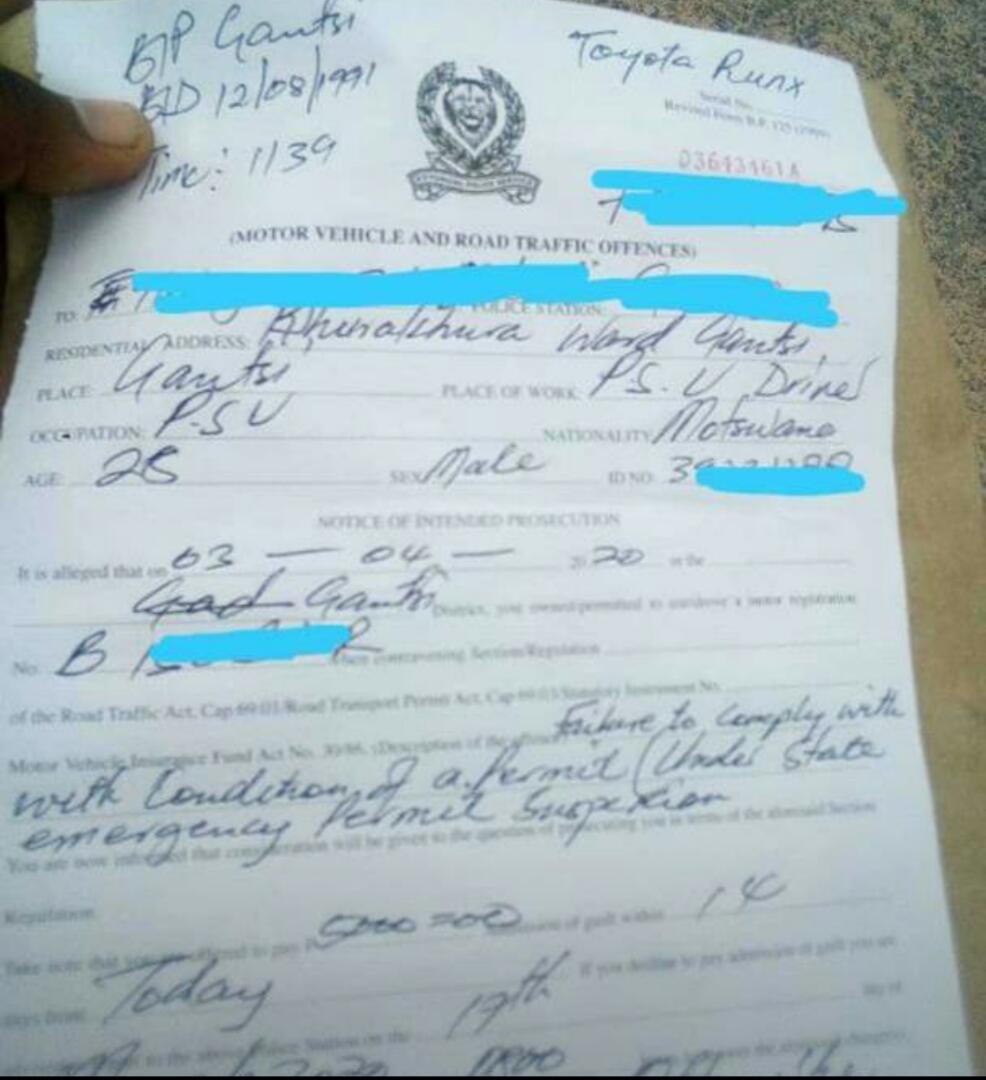 BP Gantsi
BD 12/08/1991
Time: 1139
Toyota Runx
Serial No.
Revised Form B.P. 125
03643461A
(MOTOR VEHICLE AND ROAD TRAFFIC OFFENCES)
TO: POLICE STATION:
RESIDENTIAL ADDRESS: Ward Gantsi
PLACE: Gantsi PLACE OF WORK: P.S.V Driver
OCCUPATION: P.S.V NATIONALITY: Motswana
AGE: 28 SEX: Male ID NO: 3
NOTICE OF INTENDED PROSECUTION
It is alleged that on 03 - 04 - 2020 in the
Gantsi District, you owned/permitted to use/drove a motor registration
No. B when contravening Section/Regulation
of the Road Traffic Act, Cap 69:01/Road Transport Permit Act, Cap 69:03/Statutory Instrument No.
Motor Vehicle Insurance Fund Act No. 30/86, (Description of the offence) Failure to comply with
with Condition of a Permit (Under State
emergency Permit Suspension
You are now informed that consideration will be given to the question of prosecuting you in terms of the aforesaid Section
Regulation.
Take note that you are offered to pay P 5000=00 admission of guilt within 14
days from Today If you decline to pay admission of guilt you are
to the above Police Station on the 17th day of
2020